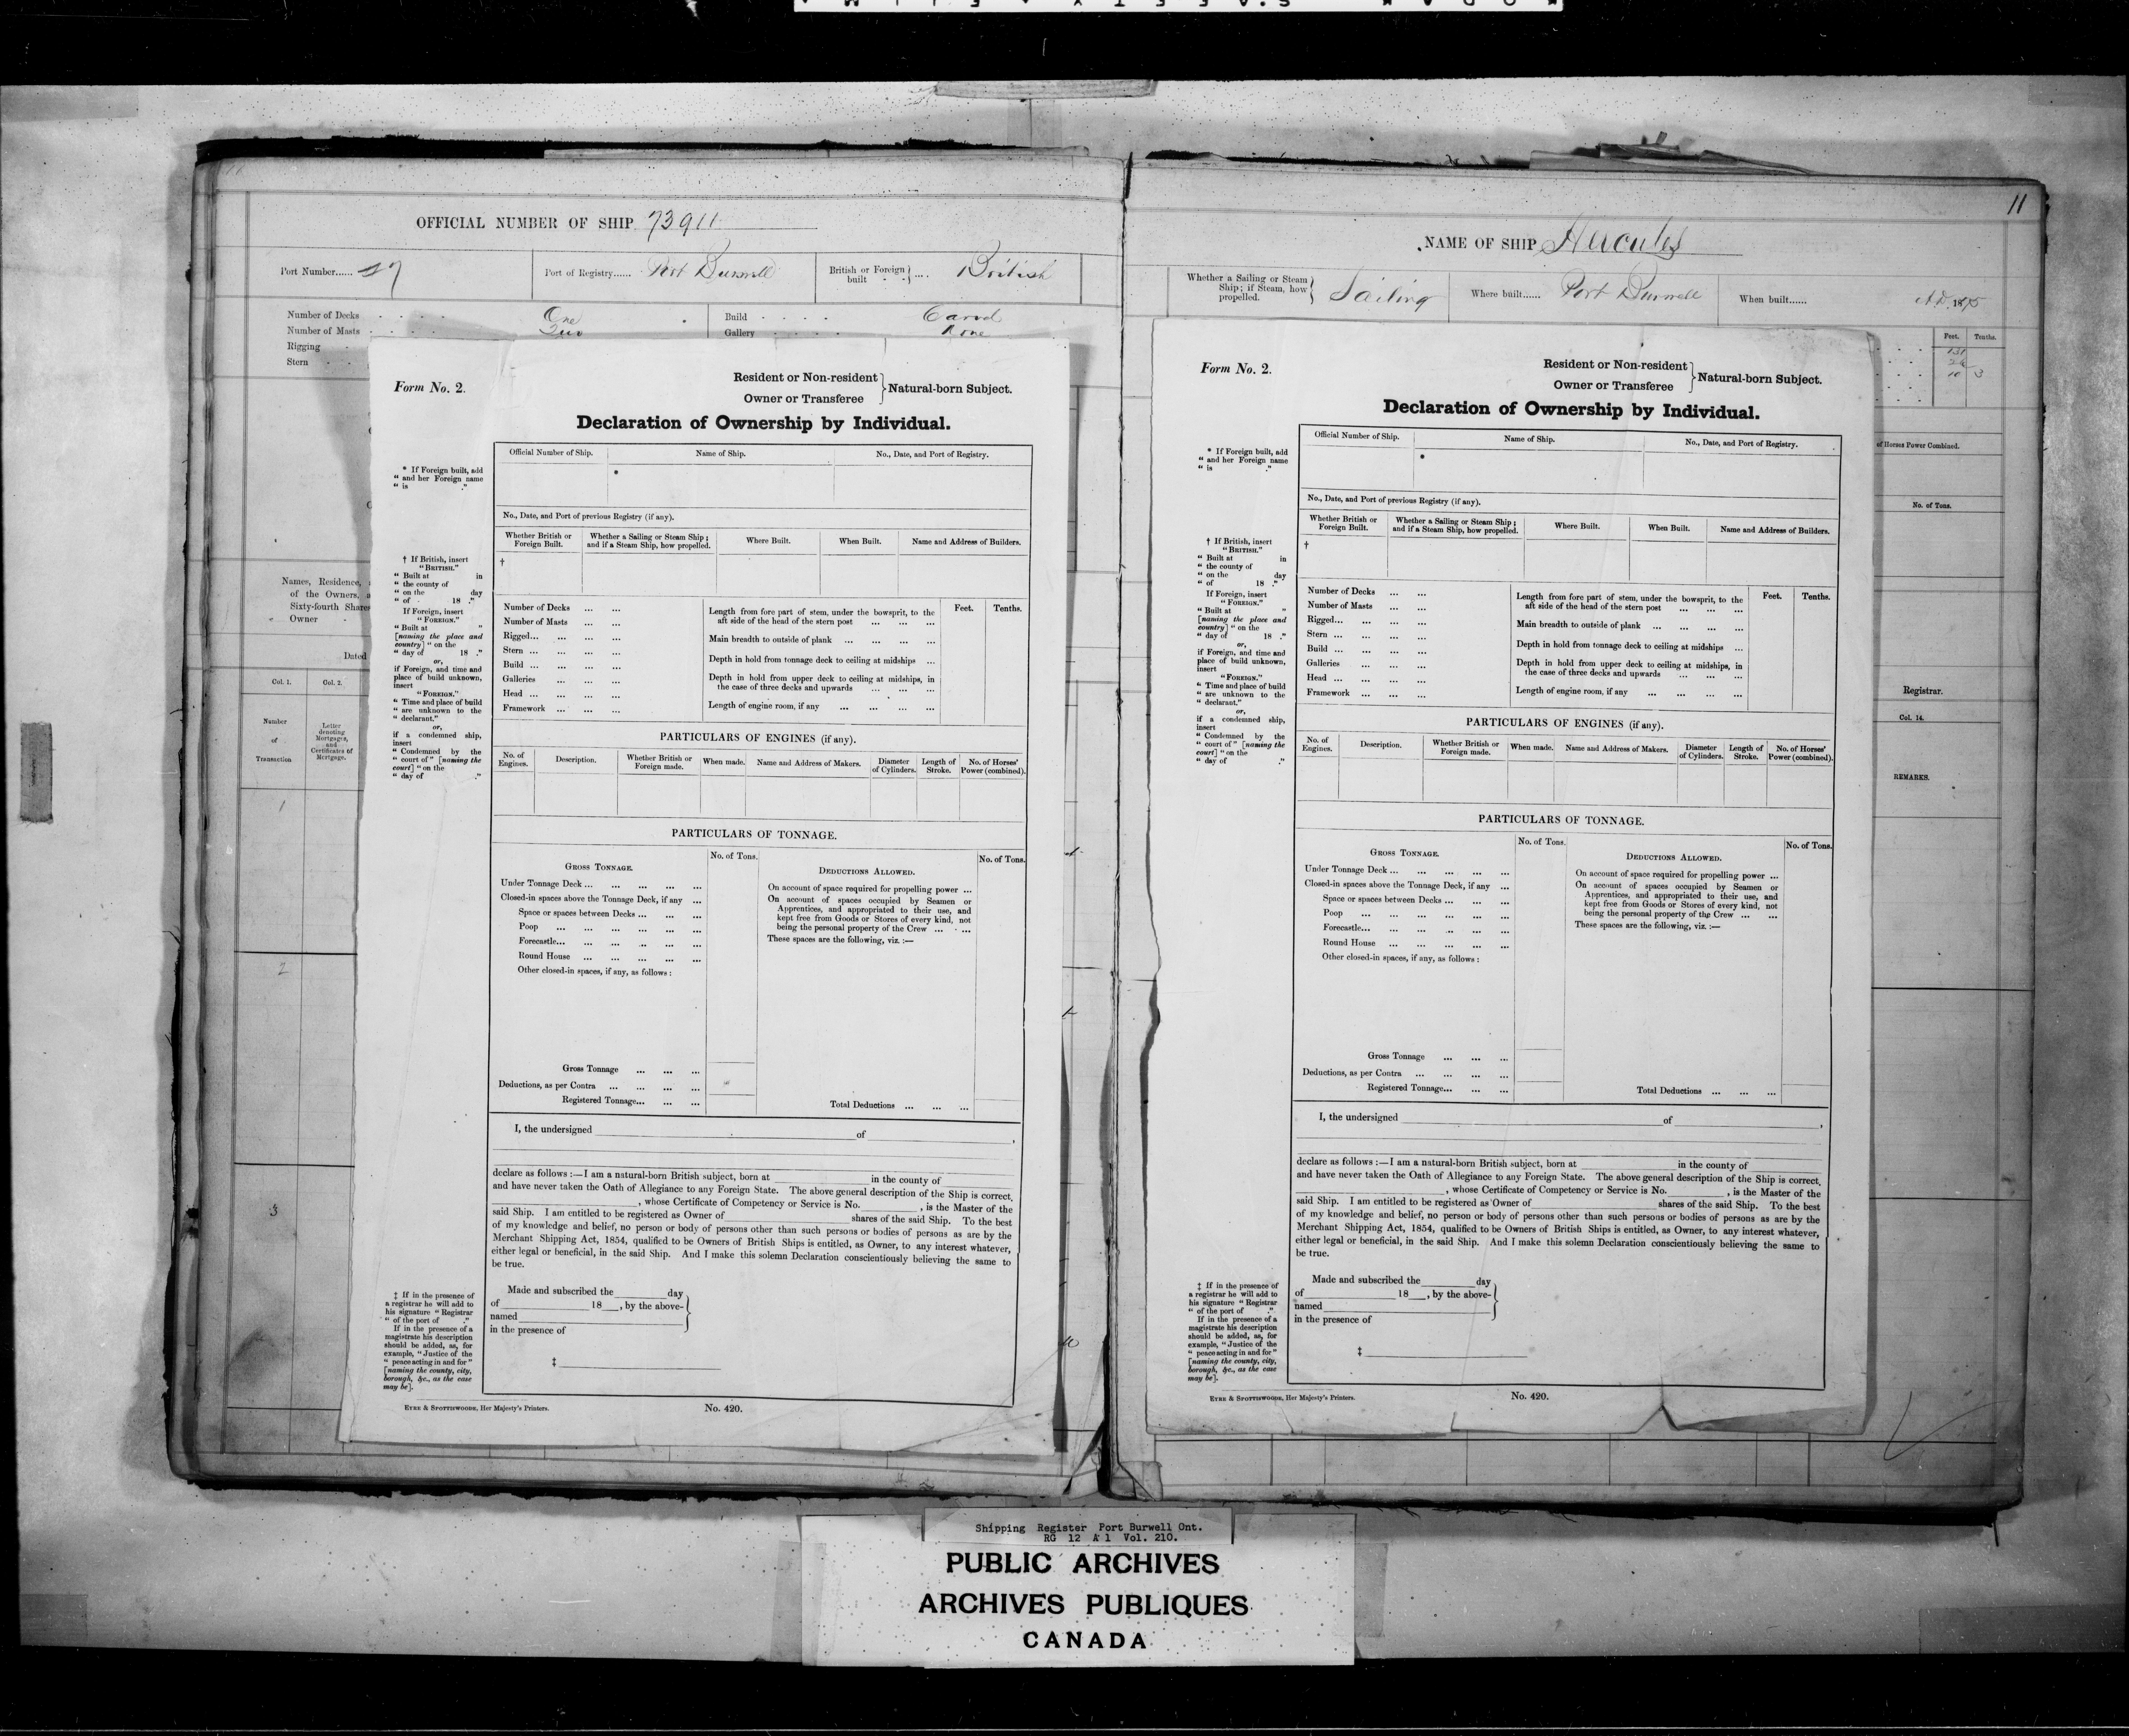 11
OFFICIAL NUMBER OF SHIP 73911
Port Number...... 27
Port of Registry...... Port Burwell
British or Foreign built - - } .... British
Number of Decks - - - - One
Number of Masts - - - - Two
Rigging -
Stern - -
Build - - - - Carvel
Gallery - - - - None
Names, Residence,
of the Owners,
Sixty-fourth Shares
Owner -
Dated
Col. 1.
Col. 2.
Number
of
Transaction
Letter
denoting
Mortgages,
and
Certificates of
Mortgage.
1
2
3
Form No. 2.
Resident or Non-resident
Owner or Transferee } Natural-born Subject.
Declaration of Ownership by Individual.
* If Foreign built, add
" and her Foreign name
" is ."
† If British, insert
"BRITISH."
" Built at in
" the county of
" on the day
" of 18 ."
If Foreign, insert
"FOREIGN."
" Built at "
[naming the place and
country] " on the
" day of 18 ."
or,
if Foreign, and time and
place of build unknown,
insert
"FOREIGN."
" Time and place of build
" are unknown to the
" declarant."
or,
if a condemned ship,
insert
" Condemned by the
" court of" [naming the
court] " on the
" day of ."
Official Number of Ship.
Name of Ship.
No., Date, and Port of Registry.
*
No., Date, and Port of previous Registry (if any).
Whether British or
Foreign Built.
Whether a Sailing or Steam Ship;
and if a Steam Ship, how propelled.
Where Built.
When Built.
Name and Address of Builders.
†
Number of Decks ... ...
Number of Masts ... ...
Rigged... ... ...
Stern ... ... ...
Build ... ... ...
Galleries ... ...
Head ... ... ...
Framework ... ... ...
Length from fore part of stem, under the bowsprit, to the
aft side of the head of the stern post ... ... ...
Main breadth to outside of plank ... ... ... ...
Depth in hold from tonnage deck to ceiling at midships ...
Depth in hold from upper deck to ceiling at midships, in
the case of three decks and upwards ... ... ...
Length of engine room, if any ... ... ... ...
Feet.
Tenths.
PARTICULARS OF ENGINES (if any).
No. of
Engines.
Description.
Whether British or
Foreign made.
When made.
Name and Address of Makers.
Diameter
of Cylinders.
Length of
Stroke.
No. of Horses'
Power (combined).
PARTICULARS OF TONNAGE.
GROSS TONNAGE.
No. of Tons.
Under Tonnage Deck ... ... ... ... ...
Closed-in spaces above the Tonnage Deck, if any ...
Space or spaces between Decks ... ... ...
Poop ... ... ... ... ... ...
Forecastle... ... ... ... ... ...
Round House ... ... ... ... ...
Other closed-in spaces, if any, as follows:
Gross Tonnage ... ... ...
Deductions, as per Contra ... ... ... ...
Registered Tonnage... ... ...
DEDUCTIONS ALLOWED.
No. of Tons.
On account of space required for propelling power ...
On account of spaces occupied by Seamen or
Apprentices, and appropriated to their use, and
kept free from Goods or Stores of every kind, not
being the personal property of the Crew ... ...
These spaces are the following, viz. :—
Total Deductions ... ... ...
I, the undersigned of ,
declare as follows :—I am a natural-born British subject, born at in the county of
and have never taken the Oath of Allegiance to any Foreign State. The above general description of the Ship is correct.
, whose Certificate of Competency or Service is No. , is the Master of the
said Ship. I am entitled to be registered as Owner of shares of the said Ship. To the best
of my knowledge and belief, no person or body of persons other than such persons or bodies of persons as are by the
Merchant Shipping Act, 1854, qualified to be Owners of British Ships is entitled, as Owner, to any interest whatever,
either legal or beneficial, in the said Ship. And I make this solemn Declaration conscientiously believing the same to
be true.
Made and subscribed the day
of 18 , by the above-
named
in the presence of
‡
‡ If in the presence of
a registrar he will add to
his signature " Registrar
" of the port of ."
If in the presence of a
magistrate his description
should be added, as, for
example, " Justice of the
" peace acting in and for"
[naming the county, city,
borough, &c., as the case
may be].
EYRE & SPOTTISWOODE, Her Majesty's Printers.
No. 420.
NAME OF SHIP Hercules
Whether a Sailing or Steam
Ship; if Steam, how
propelled. } Sailing
Where built...... Port Burwell
When built...... A.D. 1875
Feet. Tenths.
131
26
10 3
of Horses Power Combined.
No. of Tons.
Registrar.
Col. 14.
REMARKS.
Form No. 2.
Resident or Non-resident
Owner or Transferee } Natural-born Subject.
Declaration of Ownership by Individual.
* If Foreign built, add
" and her Foreign name
" is ."
† If British, insert
"BRITISH."
" Built at in
" the county of
" on the day
" of 18 ."
If Foreign, insert
"FOREIGN."
" Built at "
[naming the place and
country] " on the
" day of 18 ."
or,
if Foreign, and time and
place of build unknown,
insert
"FOREIGN."
" Time and place of build
" are unknown to the
" declarant."
or,
if a condemned ship,
insert
" Condemned by the
" court of" [naming the
court] " on the
" day of ."
Official Number of Ship.
Name of Ship.
No., Date, and Port of Registry.
*
No., Date, and Port of previous Registry (if any).
Whether British or
Foreign Built.
Whether a Sailing or Steam Ship;
and if a Steam Ship, how propelled.
Where Built.
When Built.
Name and Address of Builders.
†
Number of Decks ... ...
Number of Masts ... ...
Rigged... ... ...
Stern ... ... ...
Build ... ... ...
Galleries ... ...
Head ... ... ...
Framework ... ... ...
Length from fore part of stem, under the bowsprit, to the
aft side of the head of the stern post ... ... ...
Main breadth to outside of plank ... ... ... ...
Depth in hold from tonnage deck to ceiling at midships ...
Depth in hold from upper deck to ceiling at midships, in
the case of three decks and upwards ... ... ...
Length of engine room, if any ... ... ... ...
Feet.
Tenths.
PARTICULARS OF ENGINES (if any).
No. of
Engines.
Description.
Whether British or
Foreign made.
When made.
Name and Address of Makers.
Diameter
of Cylinders.
Length of
Stroke.
No. of Horses'
Power (combined).
PARTICULARS OF TONNAGE.
GROSS TONNAGE.
No. of Tons.
Under Tonnage Deck ... ... ... ... ...
Closed-in spaces above the Tonnage Deck, if any ...
Space or spaces between Decks ... ... ...
Poop ... ... ... ... ... ...
Forecastle... ... ... ... ... ...
Round House ... ... ... ... ...
Other closed-in spaces, if any, as follows :
Gross Tonnage ... ... ...
Deductions, as per Contra ... ... ... ...
Registered Tonnage... ... ...
DEDUCTIONS ALLOWED.
No. of Tons.
On account of space required for propelling power ...
On account of spaces occupied by Seamen or
Apprentices, and appropriated to their use, and
kept free from Goods or Stores of every kind, not
being the personal property of the Crew ... ...
These spaces are the following, viz. :—
Total Deductions ... ... ...
I, the undersigned of ,
declare as follows :—I am a natural-born British subject, born at in the county of
and have never taken the Oath of Allegiance to any Foreign State. The above general description of the Ship is correct.
, whose Certificate of Competency or Service is No. , is the Master of the
said Ship. I am entitled to be registered as Owner of shares of the said Ship. To the best
of my knowledge and belief, no person or body of persons other than such persons or bodies of persons as are by the
Merchant Shipping Act, 1854, qualified to be Owners of British Ships is entitled, as Owner, to any interest whatever,
either legal or beneficial, in the said Ship. And I make this solemn Declaration conscientiously believing the same to
be true.
Made and subscribed the day
of 18 , by the above-
named
in the presence of
‡
‡ If in the presence of
a registrar he will add to
his signature " Registrar
" of the port of ."
If in the presence of a
magistrate his description
should be added, as, for
example, " Justice of the
" peace acting in and for"
[naming the county, city,
borough, &c., as the case
may be].
EYRE & SPOTTISWOODE, Her Majesty's Printers.
No. 420.
Shipping Register Port Burwell Ont.
RG 12 A 1 Vol. 210.
PUBLIC ARCHIVES
ARCHIVES PUBLIQUES
CANADA